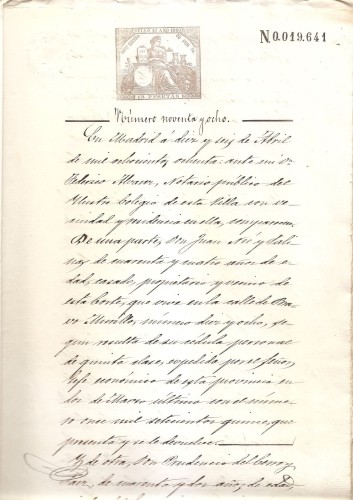 N0.019.641
Número noventa y ocho.
En Madrid á diez y seis de Abril
de mil ochocientos ochenta: ante mi Dn
Federico Alvarez, Notario público del
Ilustre Colegio de esta Villa con ve-
cindad y residencia en ella, comparecen
De una parte, Don Juan y Sali-
nas, de cuarenta y cuatro años de e-
dad, casado, propietario y vecino de
esta Corte, que vive en la calle de Bra-
vo Murillo, número diez y ocho, se-
gún resulta de su cédula personal
de quinta clase, expedida por el Señor
Jefe económico de esta provincia en
los de Marzo último con el núme-
ro once mil setecientos quince, que
presenta y se le devuelve.
Y de otra, Don Prudencio del Cerro y
de cuarenta y dos años de edad,